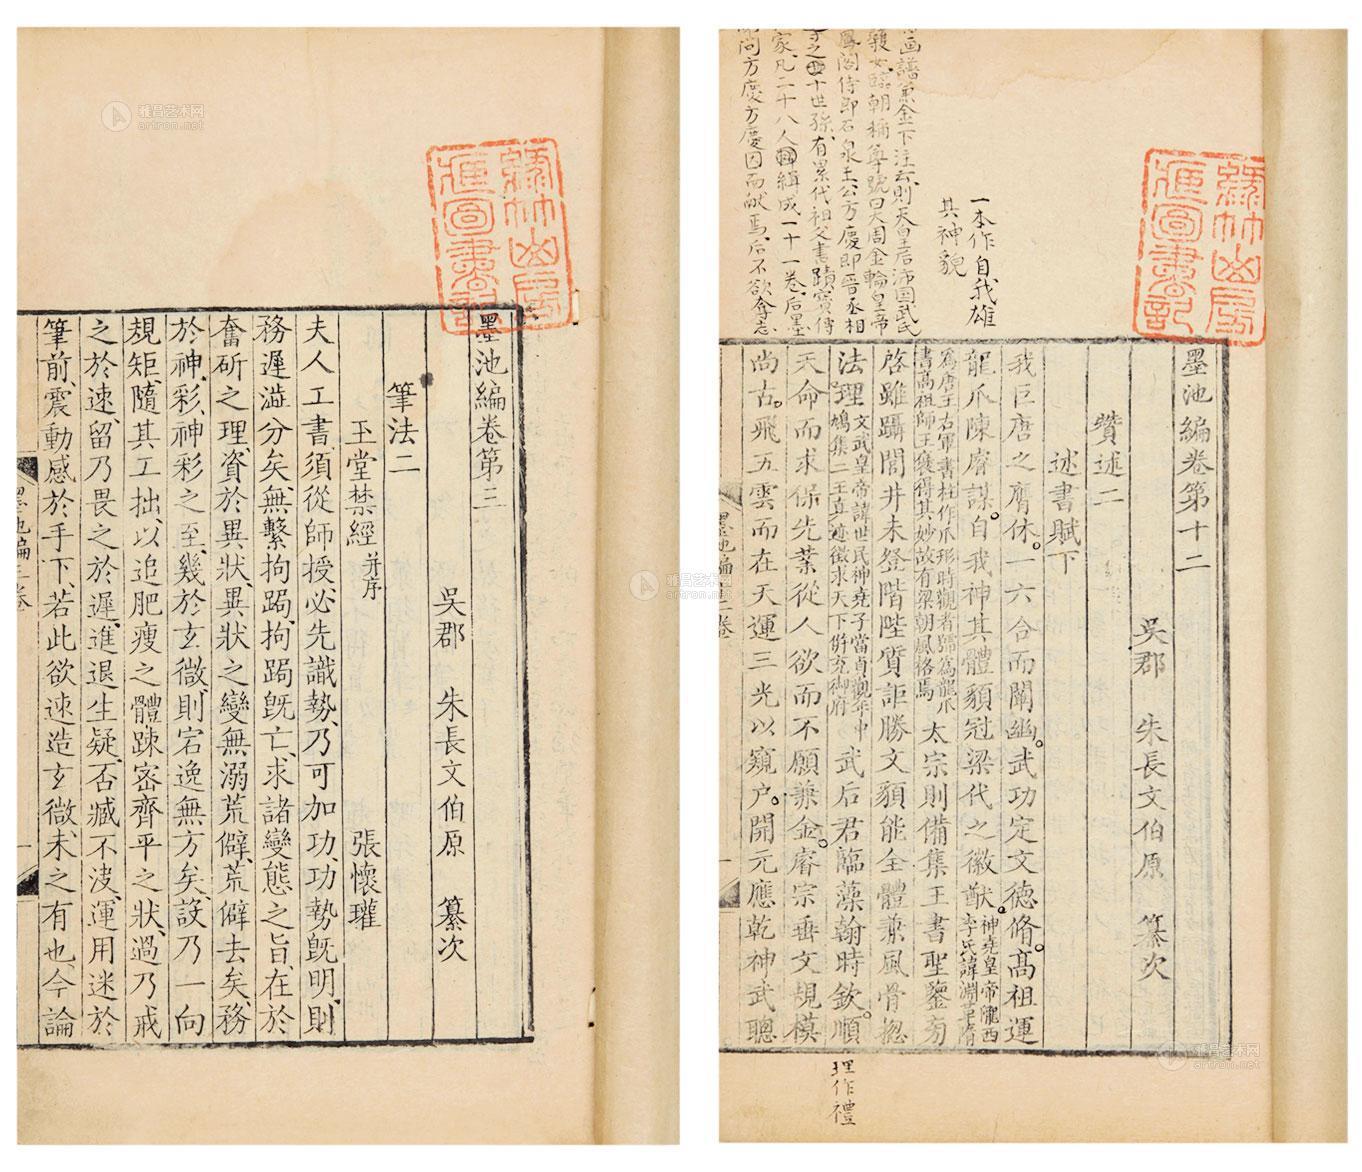 墨池編卷第三
吳郡 朱長文伯原 纂次
筆法二
玉堂禁經并序 張懷瓘
夫人工書須從師授必先識勢乃可加功功勢既明則
務遲澁分矣無繫拘跼拘跼既亡求諸變態之旨在於
奮斫之理資於異狀異狀之變無溺荒僻荒僻去矣務
於神彩神彩之至幾於玄微則宕逸無方矣設乃一向
規矩隨其工拙以追肥瘦之體踈密齊平之狀過乃戒
之於速留乃畏之於遲進退生疑否臧不決運用迷於
筆前震動感於手下若此欲速造玄微未之有也今論
墨池編卷第十二
吳郡 朱長文伯原 纂次
贊述二
述書賦下
我巨唐之膺休一六合而闡幽武功定文德脩高祖運
龍爪陳睿謀自我神其體貌冠梁代之徽猷神堯皇帝隴西李氏諱淵
為唐王右軍書柱作爪形時觀者號為龍爪
書高祖師王褒得其妙故有梁朝風格焉 太宗則備集王書聖鑒旁
啓雖躡閭井未登階陛質詎勝文貌能全體兼風骨揔
法理文武皇帝諱世民神堯子當貞觀年中
鳩集二王真迹徵求天下併充御府 武后君臨藻翰時欽順
天命而求保先業從人欲而不願兼金睿宗垂文規模
尚古飛五雲而在天運三光以窺户開元應乾神武聰
一本作自我雄
其神貌
画譜兼金下注云則天皇后沛國武氏
臨朝稱尊號曰大周金輪皇帝
鳳閣侍郎石泉王公方慶即晉丞相
十世孫有累代祖父書蹟寶傳
家凡二十八人緝成一十一卷后墨
問方慶方慶因而献焉后不欲奪志
理作禮
墨池編三卷
雅昌艺术网
artron.net
雅昌艺术网
artron.net
雅昌艺术网
artron.net